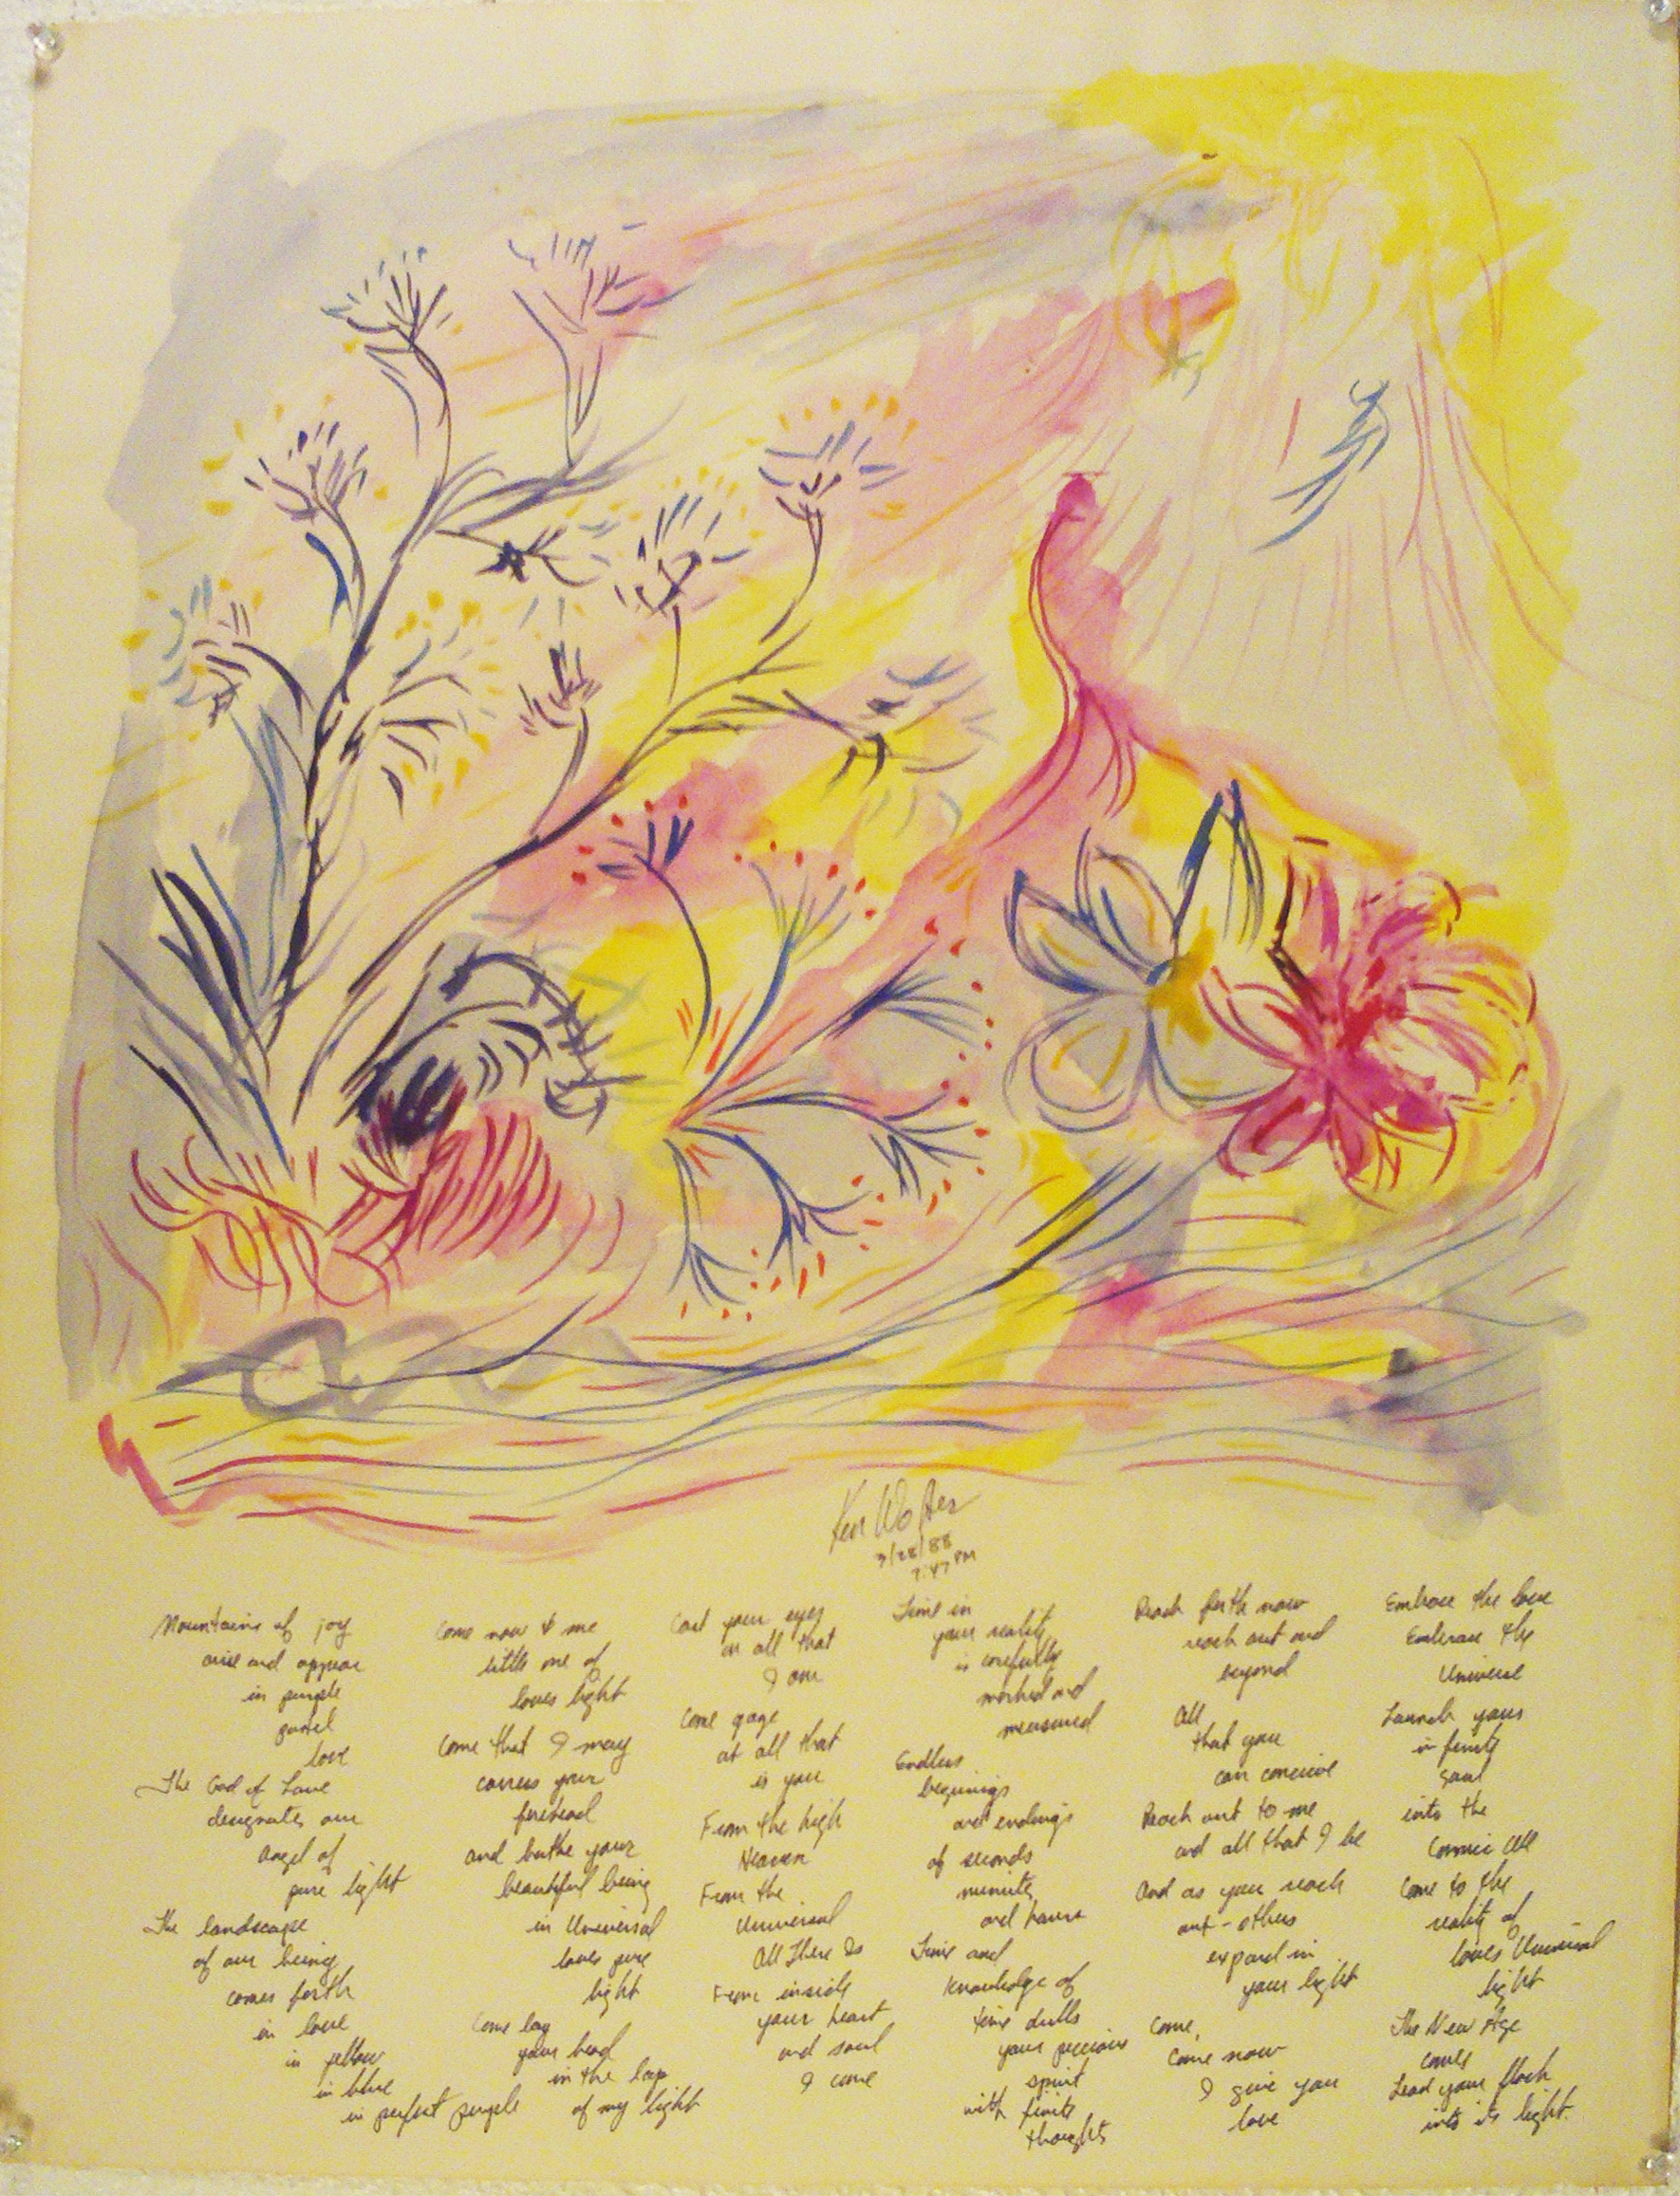 Ken Wolter
3/28/88
7:47 PM
Mountains of joy
arise and appear
in purple
pastel
love
The God of Love
designates our
angel of
pure light
The landscape
of our being
comes forth
in love
in yellow
in blue
in perfect purple
Come now to me
little one of
loves light
Come that I may
caress your
forehead
and bathe your
beautiful being
in Universal
loves pure
light
Come lay
your head
in the lap
of my light
Cast your eyes
on all that
I am
Come gaze
at all that
is you
From the high
Heaven
From the
Universal
All There Is
From inside
your heart
and soul
I come
Time in
your reality
is carefully
marked and
measured
Endless
beginings
and endings
of seconds
minutes
and hours
Time and
knowledge of
time dulls
your precious
spirit
with finite
thoughts
Reach forth now
reach out and
beyond
All
that you
can conceive
Reach out to me
and all that I be
And as you reach
out - others
expand in
your light
Come,
Come now
I give you
love
Embrace the love
Embrace the
Universe
Launch your
infinity
Soul
into the
Cosmic All
Come to the
reality of
loves Universal
light
The New Age
comes
Lead your flock
into its light.